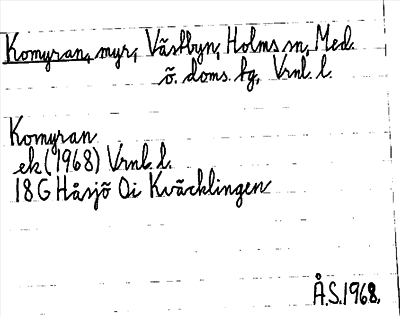 Komyran, myr, Västbyn, Holms sn, Med.
ö. doms. fg, Vrnl. l.
Komyran
ek (1968) Vrnl. l.
18G Håsjö Oi Kväcklingen
Å.S. 1968.